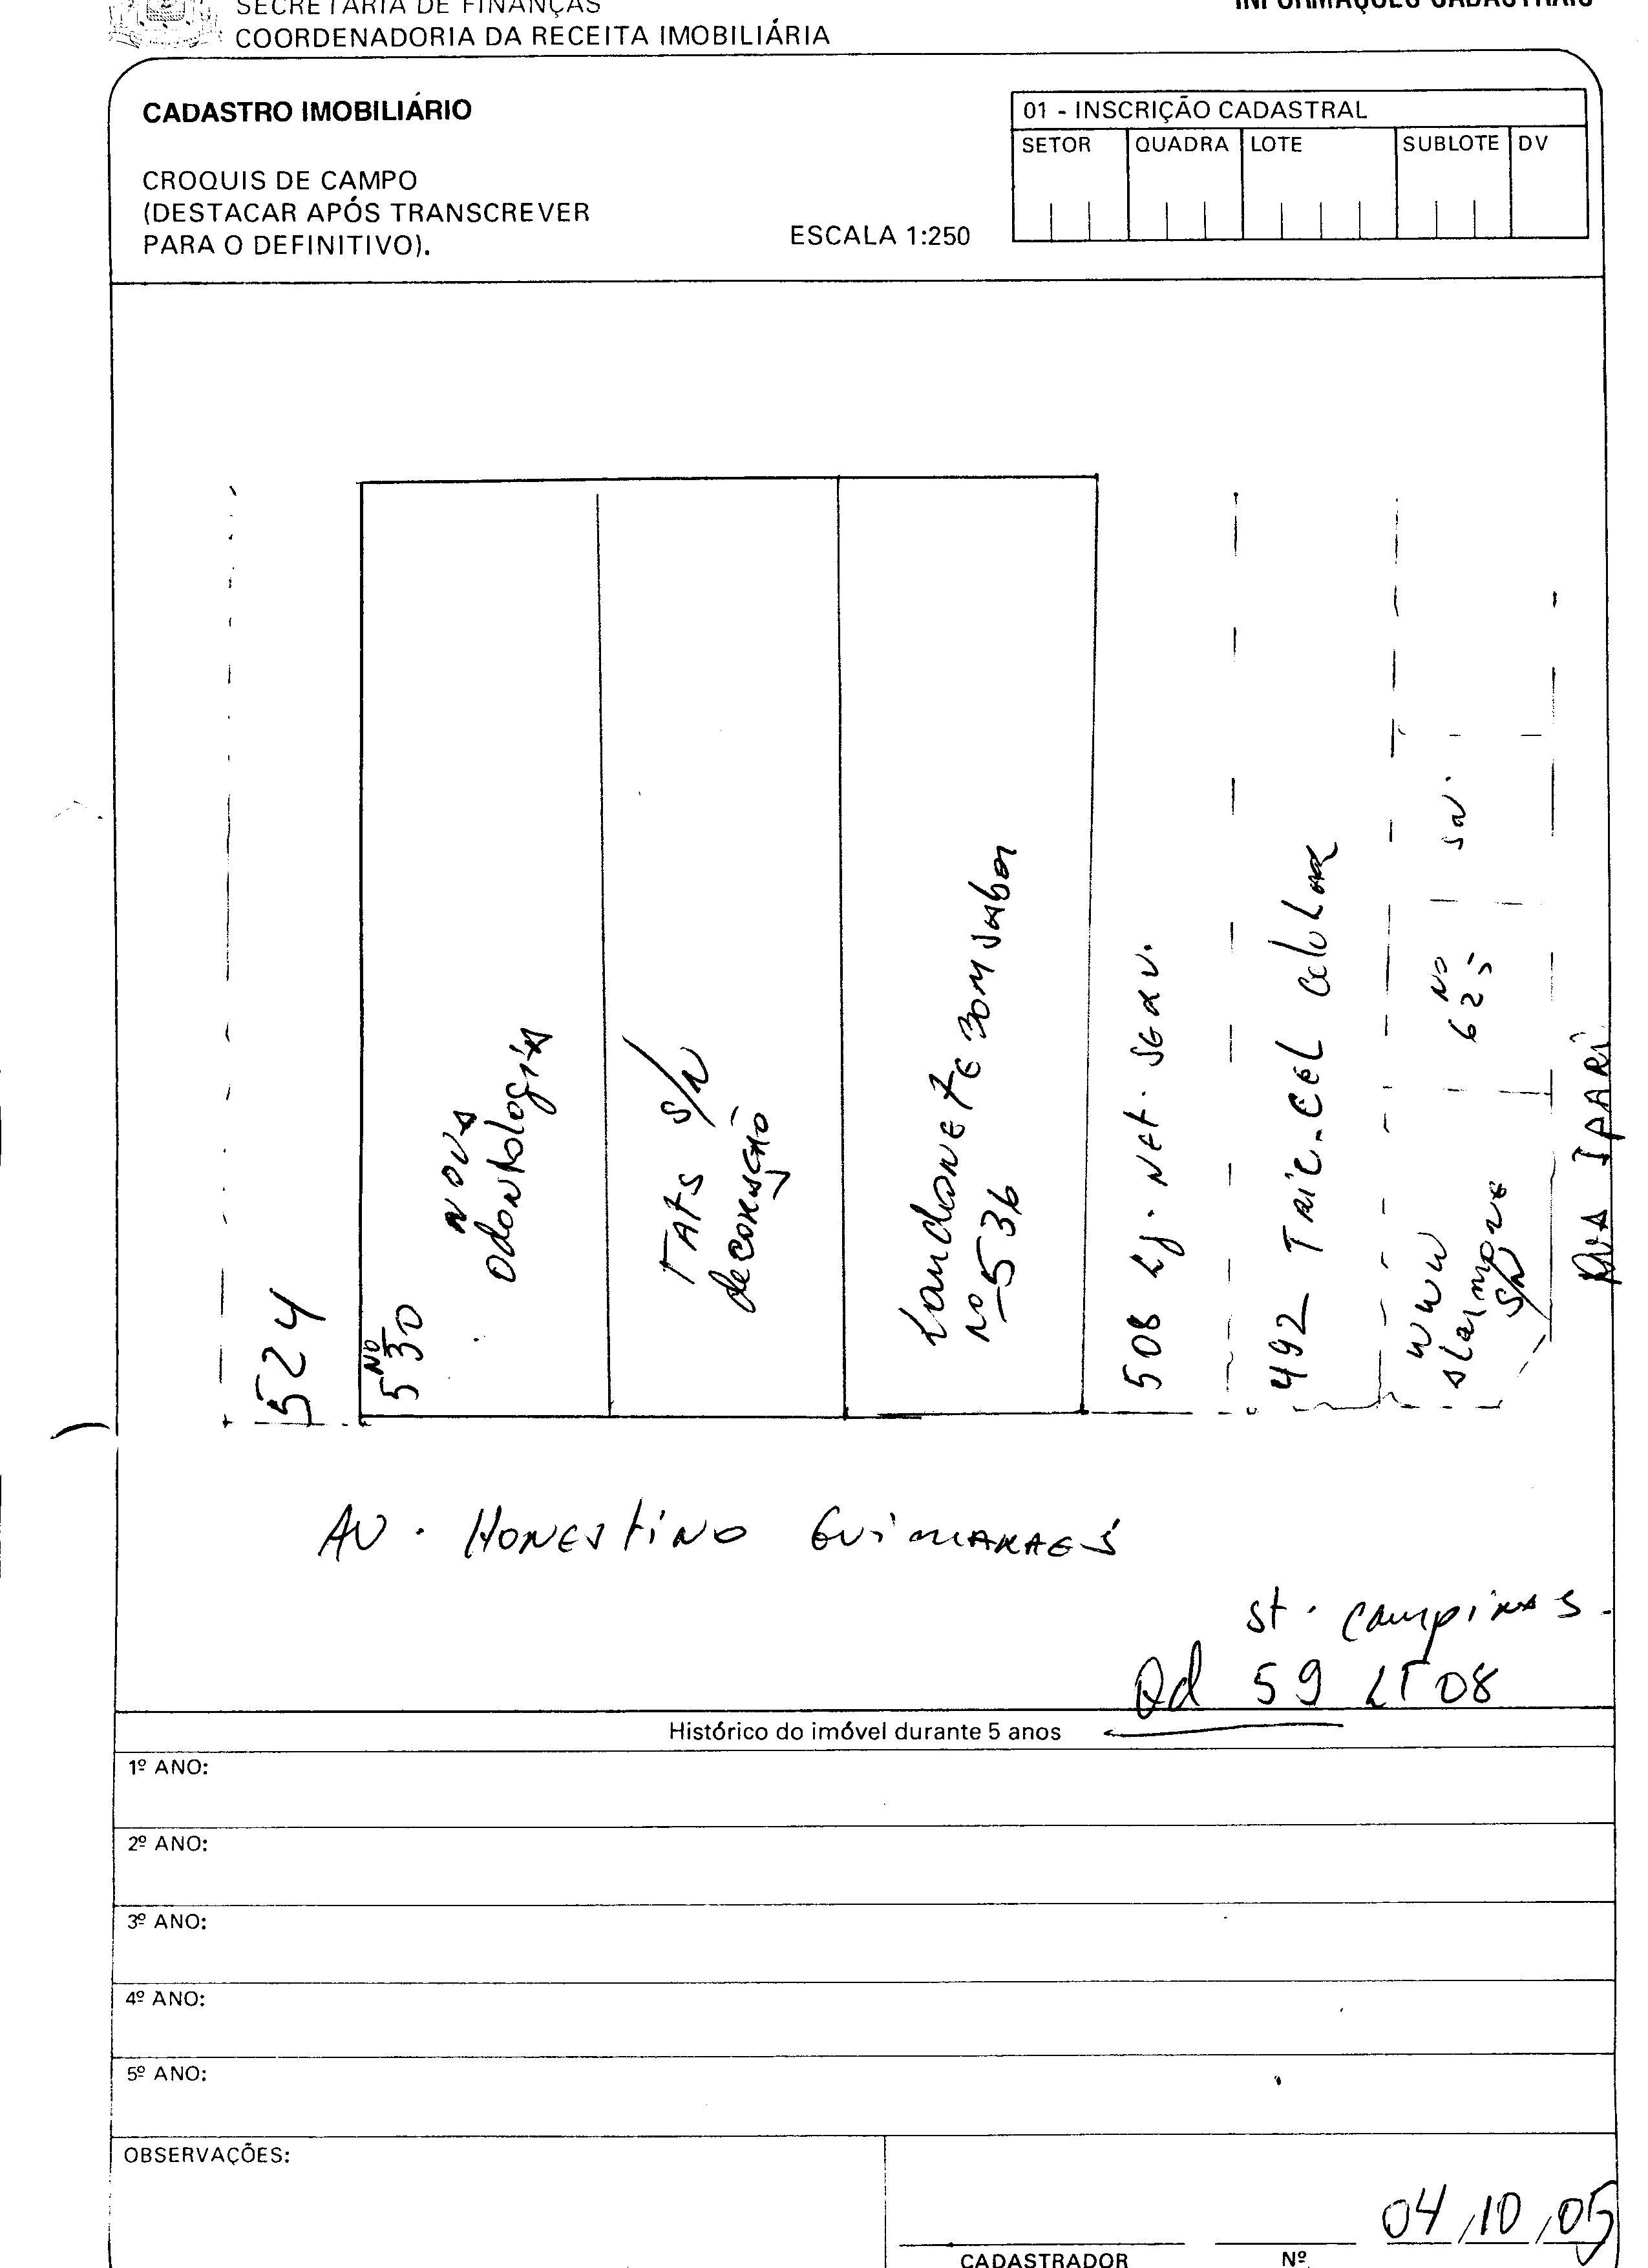 SECRETARIA DE FINANÇAS
COORDENADORIA DA RECEITA IMOBILIÁRIA
INFORMAÇÕES CADASTRAIS
CADASTRO IMOBILIÁRIO
CROQUIS DE CAMPO
(DESTACAR APÓS TRANSCREVER
PARA O DEFINITIVO).
ESCALA 1:250
01 - INSCRIÇÃO CADASTRAL
SETOR QUADRA LOTE SUBLOTE DV
524
Nº
530
NOVA
odontologia
TATS S/N
decoração
Lanchonete Bom Sabor
Nº 536
508 Lj. Net. Serv.
492 Tric-Cel Celular
WWW
S/N
Nº
625
SN.
RUA IPARI
AV. HONESTINO GUIMARAES
St. Campinas.
Qd 59 LT 08
Histórico do imóvel durante 5 anos
1º ANO:
2º ANO:
3º ANO:
4º ANO:
5º ANO:
OBSERVAÇÕES:
04/10/05
CADASTRADOR Nº